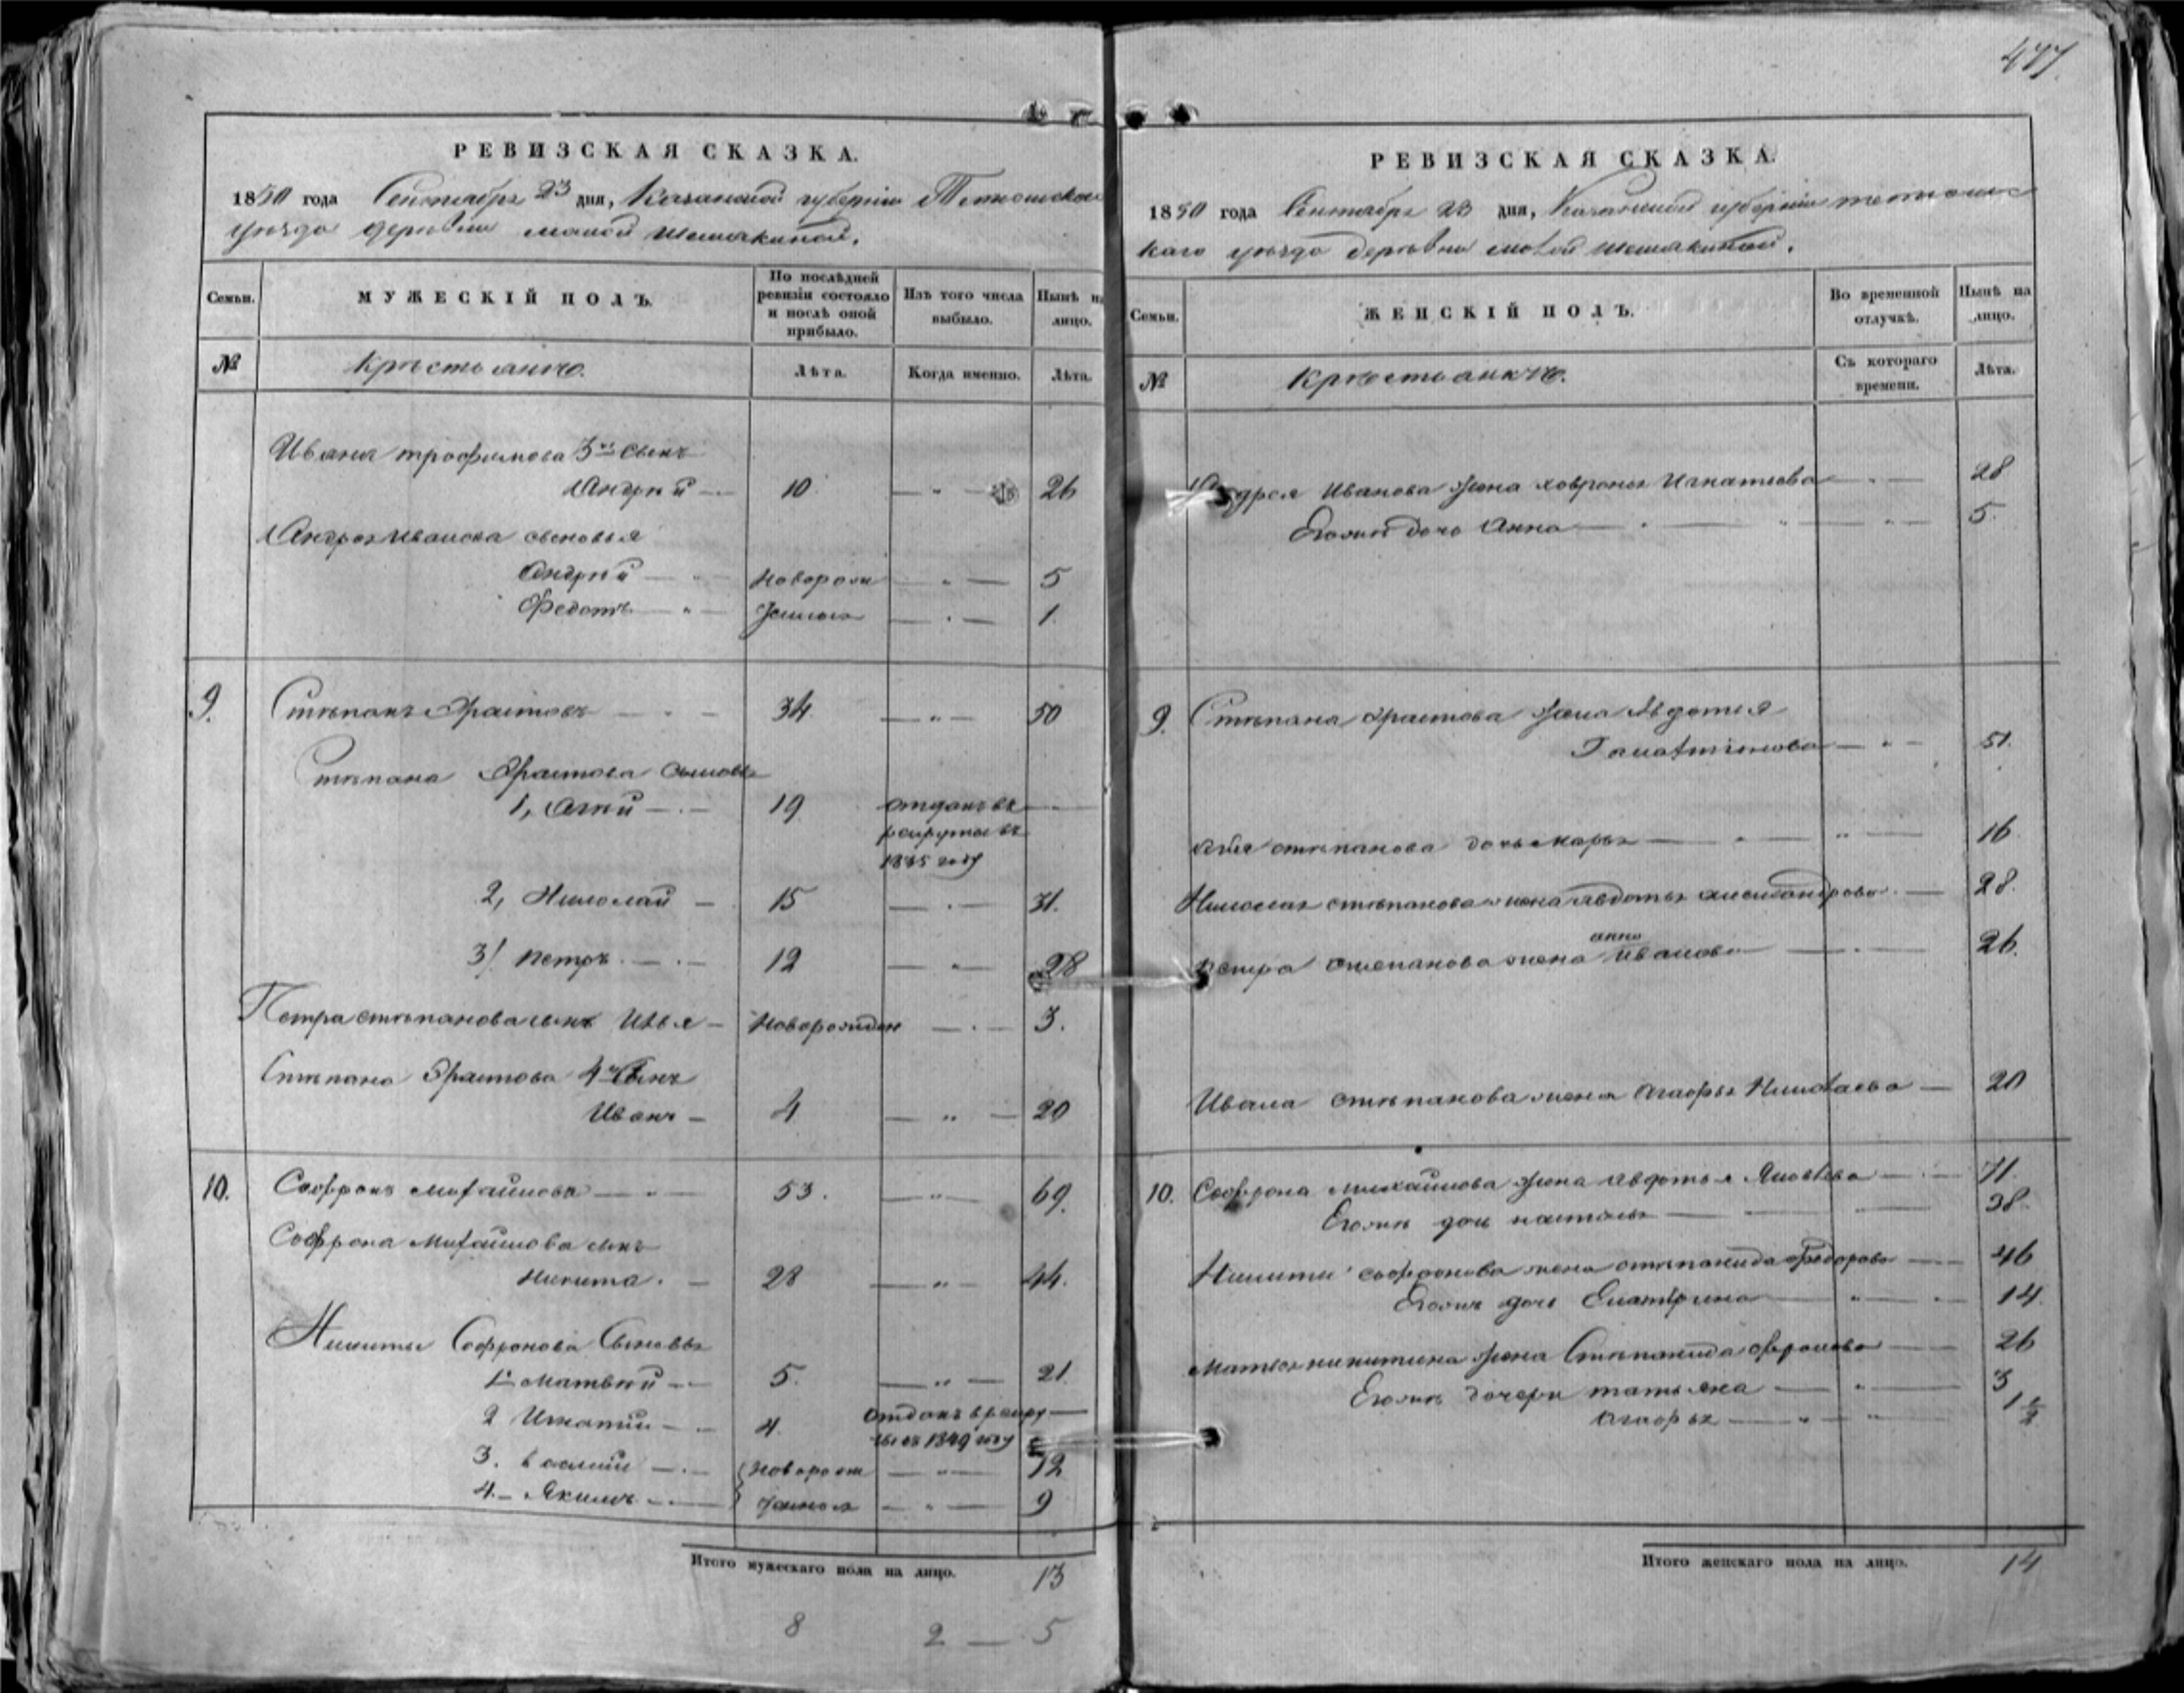 477
РЕВИЗСКАЯ СКАЗКА.
1850 года Сентября 23 дня, Казанской губернии Тетюшскаго
уѣзда деревни малой Шемякиной.
Семьи.
МУЖЕСКІЙ ПОЛЪ.
По послѣдней ревизіи состояло и послѣ оной прибыло.
Изъ того числа выбыло.
Нынѣ на лицо.
№
Крестьянъ.
Лѣта.
Когда именно.
Лѣта.
Ивана трофимова 3й сынъ
Андрей 10. 26
Андрея Иванова сыновья
Андрей новорож 5
Федотъ 1
9. Степанъ 34 50
Степана сыновья
1, 19 отданъ въ
рекруты въ
1835 году
2, Николай 15 31.
3, петръ 12 28
Петра степанова сынъ Илья новорожден 3.
Степана 4й сынъ
Иванъ 4 20
10. Софронъ михайловъ 53. 69.
Софрона михайлова сынъ
Никита. 28 44.
Никиты Софронова Сыновья
1й матвей 5. 21
2 Игнатій 4. отданъ в рекру
ты въ 1849 году
3. василий новорож 12
4. Якимъ 9
Итого мужескаго пола на лицо. 13
8 2 — 5
РЕВИЗСКАЯ СКАЗКА.
1850 года Сентября 23 дня, Казанской губернии тетюшс
каго уѣзда деревни малой шемякиной.
Семьи.
ЖЕНСКІЙ ПОЛЪ.
Во временной отлучкѣ.
Нынѣ на лицо.
№
Крестьянкъ.
Съ котораго времени.
Лѣта.
Андрея Иванова жена ховронья Игнатьева 28
Его дочь Анна 5.
9. Степана жена Авдотья
51.
степанова дочь марья 16
Николая степанова жена авдотья александрова 28.
анна
петра степанова жена иванова 26.
Ивана степанова жена агафья Николаева 20
10. Софрона михайлова жена авдотья Яковлева 71.
дочь 38.
Никиты софронова жена степанида федорова 46
дочь Екатерина 14
Матвея никитина жена Степанида 26
дочери татьяна 3
агафья 1 1/2
Итого женскаго пола на лицо. 14